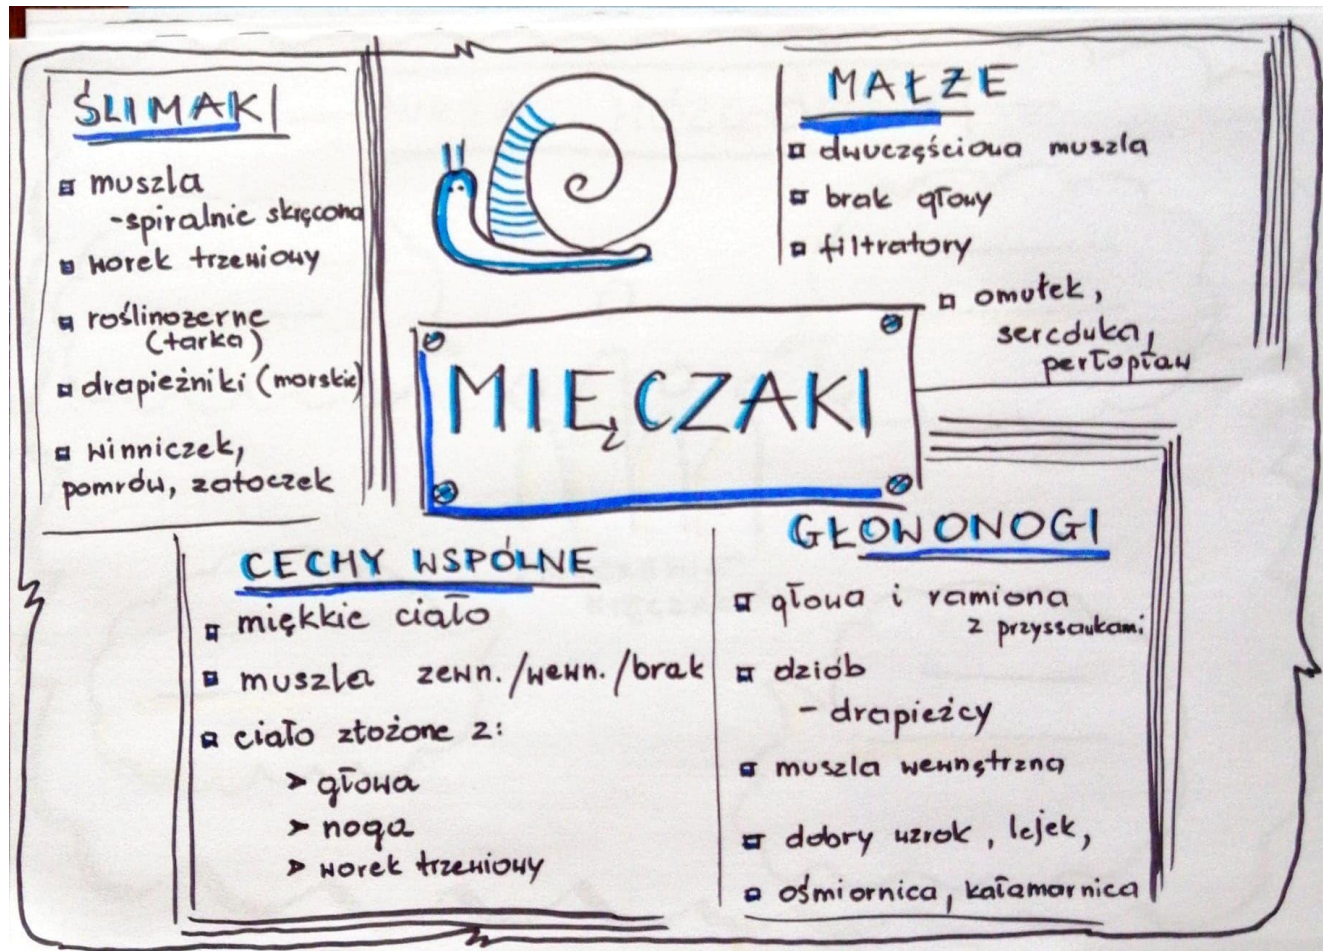 ŚLIMAKI
▫ muszla
-spiralnie skręcona
▫ worek trzewiowy
▫ roślinożerne
(tarka)
▫ drapieżniki (morskie)
▫ winniczek,
pomrów, zatoczek
MAŁŻE
▫ dwuczęściowa muszla
▫ brak głowy
▫ filtratory
▫ omułek,
sercówka,
perłopław
MIĘCZAKI
CECHY WSPÓLNE
▫ miękkie ciało
▫ muszla zewn./wewn./brak
▫ ciało złożone z:
➤ głowa
➤ noga
➤ worek trzewiowy
GŁOWONOGI
▫ głowa i ramiona
z przyssawkami
▫ dziób
- drapieżcy
▫ muszla wewnętrzna
▫ dobry wzrok, lejek,
▫ ośmiornica, kałamarnica